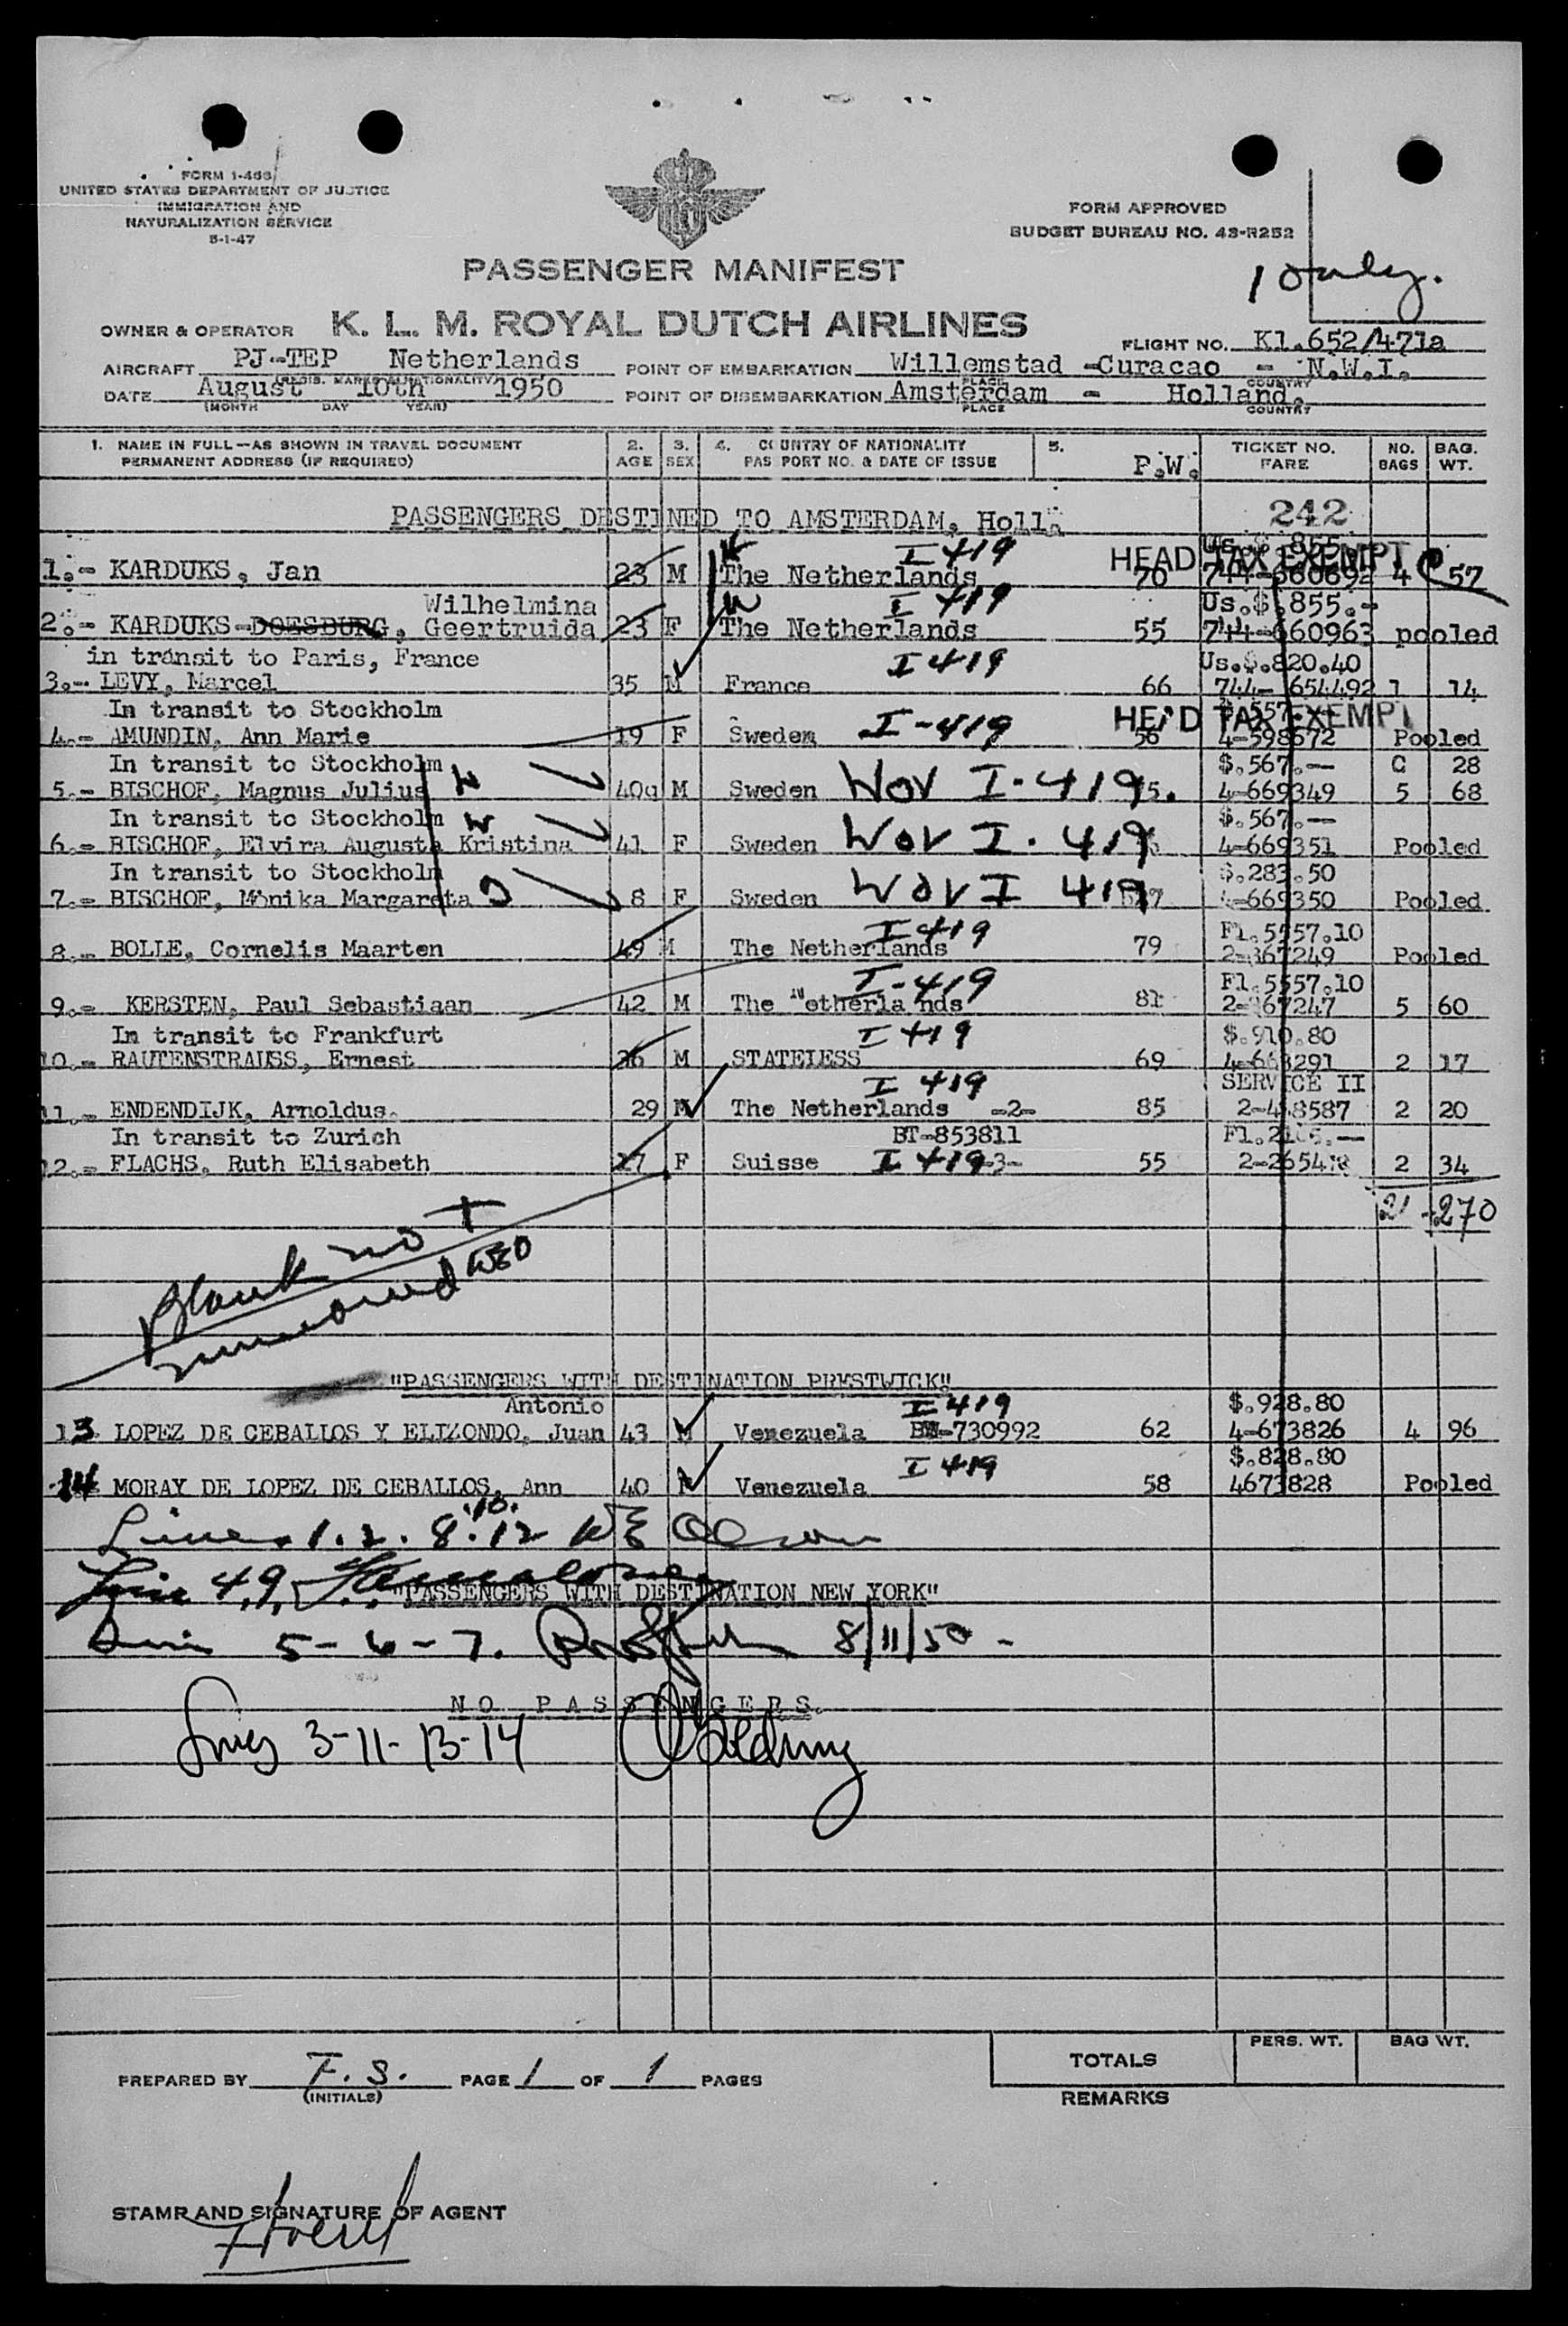 FORM 1-466
UNITED STATES DEPARTMENT OF JUSTICE
IMMIGRATION AND
NATURALIZATION SERVICE
5-1-47
FORM APPROVED
BUDGET BUREAU NO. 43-R252
PASSENGER MANIFEST
OWNER & OPERATOR K. L. M. ROYAL DUTCH AIRLINES
FLIGHT NO. Kl.652/471a
AIRCRAFT PJ-TEP Netherlands POINT OF EMBARKATION Willemstad -Curacao - N.W.I.
(REGIS. MARKS & NATIONALITY) PLACE COUNTRY
DATE August 10th 1950 POINT OF DISEMBARKATION Amsterdam - Holland.
(MONTH DAY YEAR) PLACE COUNTRY
1. NAME IN FULL—AS SHOWN IN TRAVEL DOCUMENT 2. 3. 4. COUNTRY OF NATIONALITY 5. TICKET NO. NO. BAG.
PERMANENT ADDRESS (IF REQUIRED) AGE SEX PASSPORT NO. & DATE OF ISSUE P.W. FARE BAGS WT.
242
PASSENGERS DESTINED TO AMSTERDAM, Holl.
I 419 HEAD TAX EXEMPT Us.$.855.
1.- KARDUKS, Jan 23 M The Netherlands 70 744-660692 4 57
Wilhelmina I 419 Us.$.855.-
2.- KARDUKS-DOESBURG, Geertruida 23 F The Netherlands 55 744-660963 pooled
in transit to Paris, France I 419 Us.$.820.40
3.- LEVY, Marcel 35 M France 66 744-654492 1 14
In transit to Stockholm HEAD TAX EXEMPT
4.- AMUNDIN, Ann Marie 19 F Sweden I-419 56 4-598672 Pooled
In transit to Stockholm $.567.— C 28
5.- BISCHOF, Magnus Julius W M Sweden Wov I-419 4-669349 5 68
In transit to Stockholm W $.567.—
6.- BISCHOF, Elvira Augusta Kristina 41 F Sweden Wov I. 419 4-669351 Pooled
In transit to Stockholm $.283.50
7.- BISCHOF, Monika Margareta 8 F Sweden Wov I 419 4-669350 Pooled
I 419 Fl.5557.10
8.- BOLLE, Cornelis Maarten 49 M The Netherlands 79 2-367249 Pooled
I-419 Fl.5557.10
9.- KERSTEN, Paul Sebastiaan 42 M The Netherla nds 81 2-367247 5 60
In transit to Frankfurt I 419 $.910.80
10.- RAUTENSTRAUSS, Ernest 36 M STATELESS 69 4-668291 2 17
I 419 SERVICE II
11.- ENDENDIJK, Arnoldus. 29 M The Netherlands -2- 85 2-458587 2 20
In transit to Zurich BT-853811
12.- FLACHS, Ruth Elisabeth 27 F Suisse I 419 -3- 55 2 34
21 270
Blank not
manifested WEO
"PASSENGERS WITH DESTINATION PRESTWICK"
Antonio I 419 $.928.80
13 LOPEZ DE CEBALLOS Y ELIZONDO, Juan 43 M Venezuela -730992 62 4-673826 4 96
I 419 $.828.80
14 MORAY DE LOPEZ DE CEBALLOS, Ann 40 F Venezuela 58 4673828 Pooled
Lines 1. 2. 8. 10. 12 WE Olson
Line 4, 9,
"PASSENGERS WITH DESTINATION NEW YORK"
5-6-7. 8/11/50 -
NO PASSENGERS.
Lines 3-11-13-14
TOTALS PERS. WT. BAG WT.
PREPARED BY F. S. PAGE 1 OF 1 PAGES
(INITIALS)
REMARKS
STAMP AND SIGNATURE OF AGENT